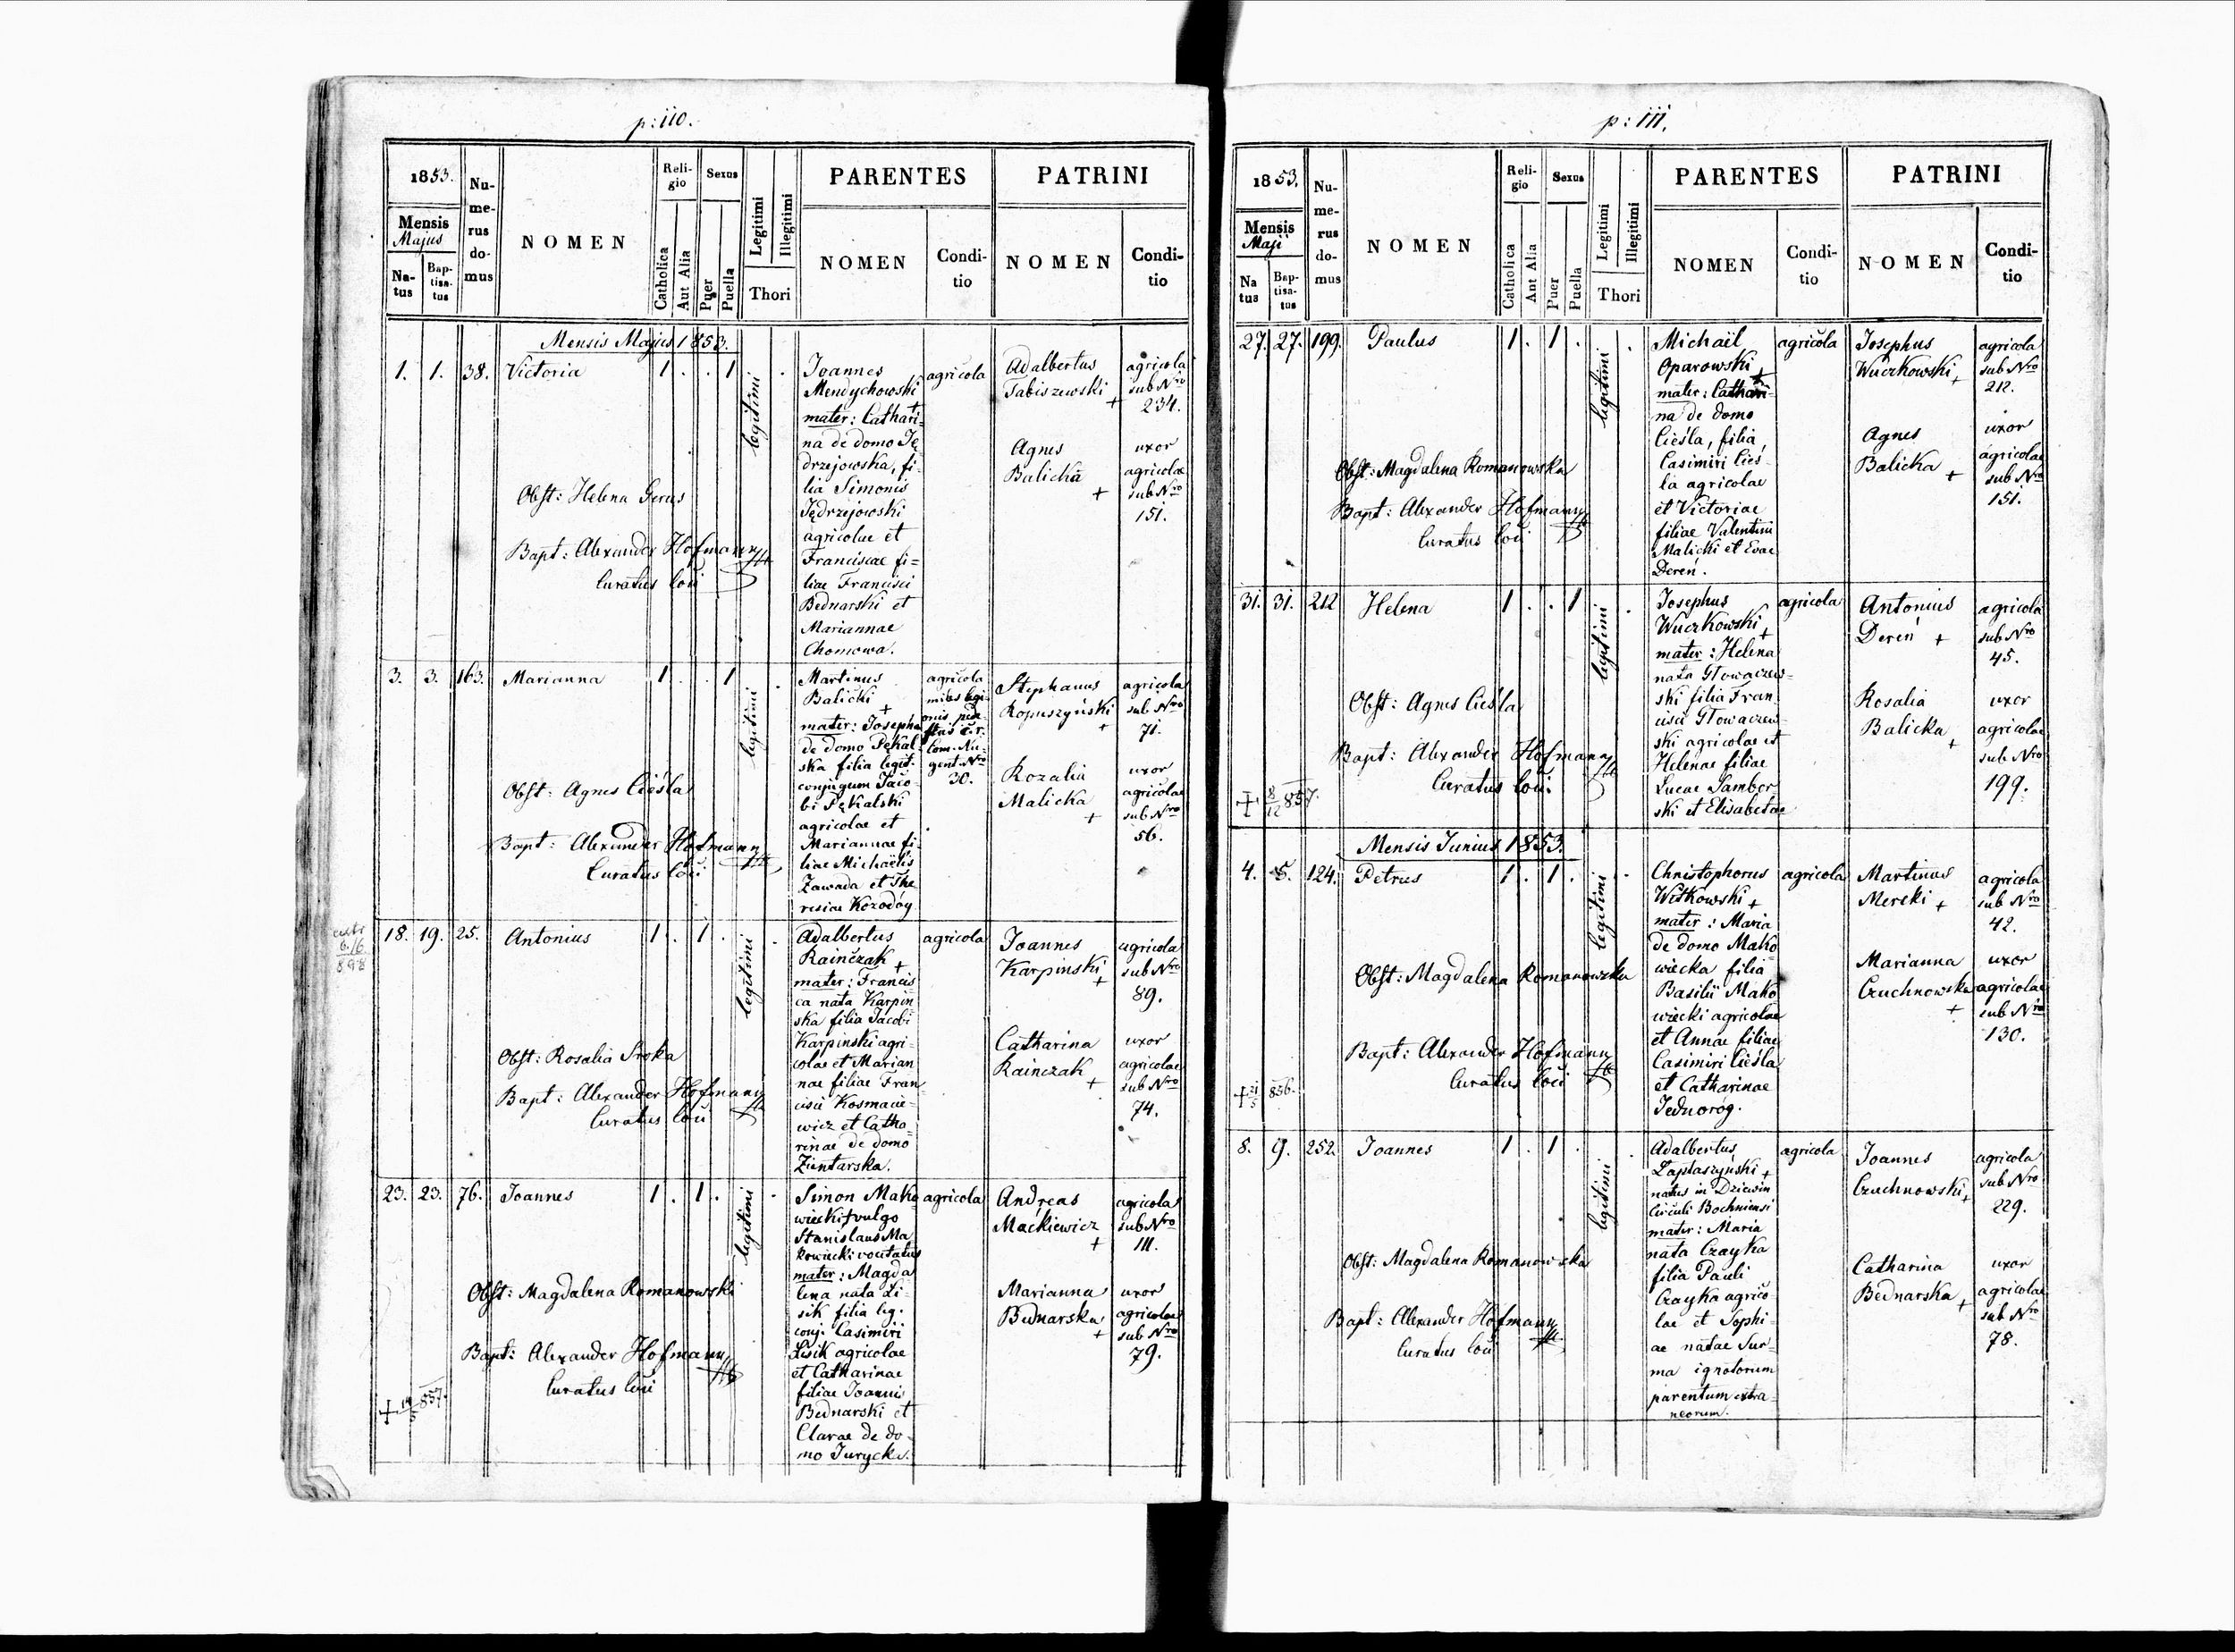 p: 110.
1853.
Mensis
Majus
Na-
tus
Bap-
tisa-
tus
Nu-
me-
rus
do-
mus
NOMEN
Reli-
gio
Catholica
Aut Alia
Sexus
Puer
Puella
Legitimi
Illegitimi
Thori
PARENTES
NOMEN
Condi-
tio
PATRINI
NOMEN
Condi-
tio
Mensis Majus 1853.
1. 1. 38. Victoria 1 . . 1 .
legitimi
Obst: Helena Gerus
Bapt: Alexander Hofmann
Curatus loci
Joannes
Mendychowski
+
mater: Cathari=
na de domo Ję
drzejowska, fi-
lia Simonis
Jędrzejowski
agricolae et
Franciscae fi=
liae Francisci
Bednarski et
Mariannae
Chomowa.
agricola
Adalbertus
Tabiszewski
+
agricola
sub Nro
234.
Agnes
Balicka
+
uxor
agricolae
sub Nro
151.
3. 3. 163. Marianna 1 . . 1 .
legitimi
Obst: Agnes Cieśla
Bapt: Alexander Hofmann
Curatus loci
Martinus
Balicki
+
mater: Josepha
de domo Pękal-
ska filia legit.
conjugum Jaco-
bi Pękalski
agricolae et
Mariannae fi-
liae Michaëlis
Zawada et The
resiae Kozodóy
agricola
miles legi-
onis pede-
stris C. r.
Com. Nu-
gent. Nro
30.
Stephanus
Ropuszyński
+
agricola
sub Nro
71.
Rozalia
Malicka
+
uxor
agricolae
sub Nro
56.
6/6
898
18. 19. 25. Antonius 1 . 1 . .
legitimi
Obst: Rosalia Sroka
Bapt: Alexander Hofmann
Curatus loci
Adalbertus
Rainczak +
mater: Francis
ca nata Karpin
ska filia Jacobi
Karpinski agri-
colae et Marian
nae filiae Fran
cisci Kosmacie-
wicz et Catha-
rinae de domo
Zientarska.
agricola
Joannes
Karpinski
+
agricola
sub Nro
89.
Catharina
Rainczak
+
uxor
agricolae
sub Nro
74.
23. 23. 76. Joannes 1 . 1 . .
legitimi
Obst: Magdalena Romanowski
Bapt: Alexander Hofmann
Curatus loci
+ 14/5 857.
Simon Mako
wiecki + vulgo
Stanislaus Ma
kowiecki vocitatus
mater: Magda
lena nata Li-
sik filia leg.
conj. Casimiri
Lisik agricolae
et Catharinae
filiae Joannis
Bednarski et
Clarae de do-
mo Jurycka.
agricola
Andreas
Mackiewicz
+
agricola
sub Nro
111.
Marianna
Bednarska
+
uxor
agricolae
sub Nro
79.
p: 111.
1853.
Mensis
Maji
Na
tus
Bap-
tisa-
tus
Nu-
me-
rus
do-
mus
NOMEN
Reli-
gio
Catholica
Aut Alia
Sexus
Puer
Puella
Legitimi
Illegitimi
Thori
PARENTES
NOMEN
Condi-
tio
PATRINI
NOMEN
Condi-
tio
27. 27. 199. Paulus 1 . 1 . .
legitimi
Obst: Magdalena Romanowska
Bapt: Alexander Hofmann
Curatus loci
Michaël
Oparowski
+
mater: Cathari-
na de domo
Cieśla, filia
Casimiri Cieś-
la agricolae
et Victoriae
filiae Valentini
Malicki et Evae
Dereń.
agricola
Josephus
Wuczkowski
+
agricola
sub Nro
212.
Agnes
Balicka
+
uxor
agricolae
sub Nro
151.
31. 31. 212 Helena 1 . . 1 .
legitimi
Obst: Agnes Cieśla
Bapt: Alexander Hofmann
Curatus loci.
+ 8/12 857.
Josephus
Wuczkowski
+
mater: Helena
nata Głowaczew-
ski filia Fran
cisci Głowaczew-
ski agricolae et
Helenae filiae
Lucae Sambor
ski et Elisabetae
agricola
Antonius
Dereń +
agricola
sub Nro
45.
Rosalia
Balicka
+
uxor
agricolae
sub Nro
199.
Mensis Junius 1853.
4. 5. 124. Petrus 1 . 1 . .
legitimi
Obst: Magdalena Romanowska
Bapt: Alexander Hofmann
Curatus loci
+ 21/5 856.
Christophorus
Witkowski +
mater: Maria
de domo Mako
wiecka filia
Basilii Mako
wiecki agricolae
et Annae filiae
Casimiri Cieśla
et Catharinae
Jednoróg.
agricola
Martinus
Mereki +
agricola
sub Nro
42.
Marianna
Czuchnowska
+
uxor
agricolae
sub Nro
130.
8. 9. 252. Joannes 1 . 1 . .
legitimi
Obst: Magdalena Romanowska
Bapt: Alexander Hofmann
Curatus loci
Adalbertus
Łaptaszyński +
natus in Dziewin
Circuli Bochniensi
mater: Maria
nata Czayka
filia Pauli
Czayka agrico-
lae et Sophi-
ae natae Sur-
ma ignotorum
parentum extra-
neorum.
agricola
Joannes
Czuchnowski
+
agricola
sub Nro
229.
Catharina
Bednarska
+
uxor
agricolae
sub Nro
78.